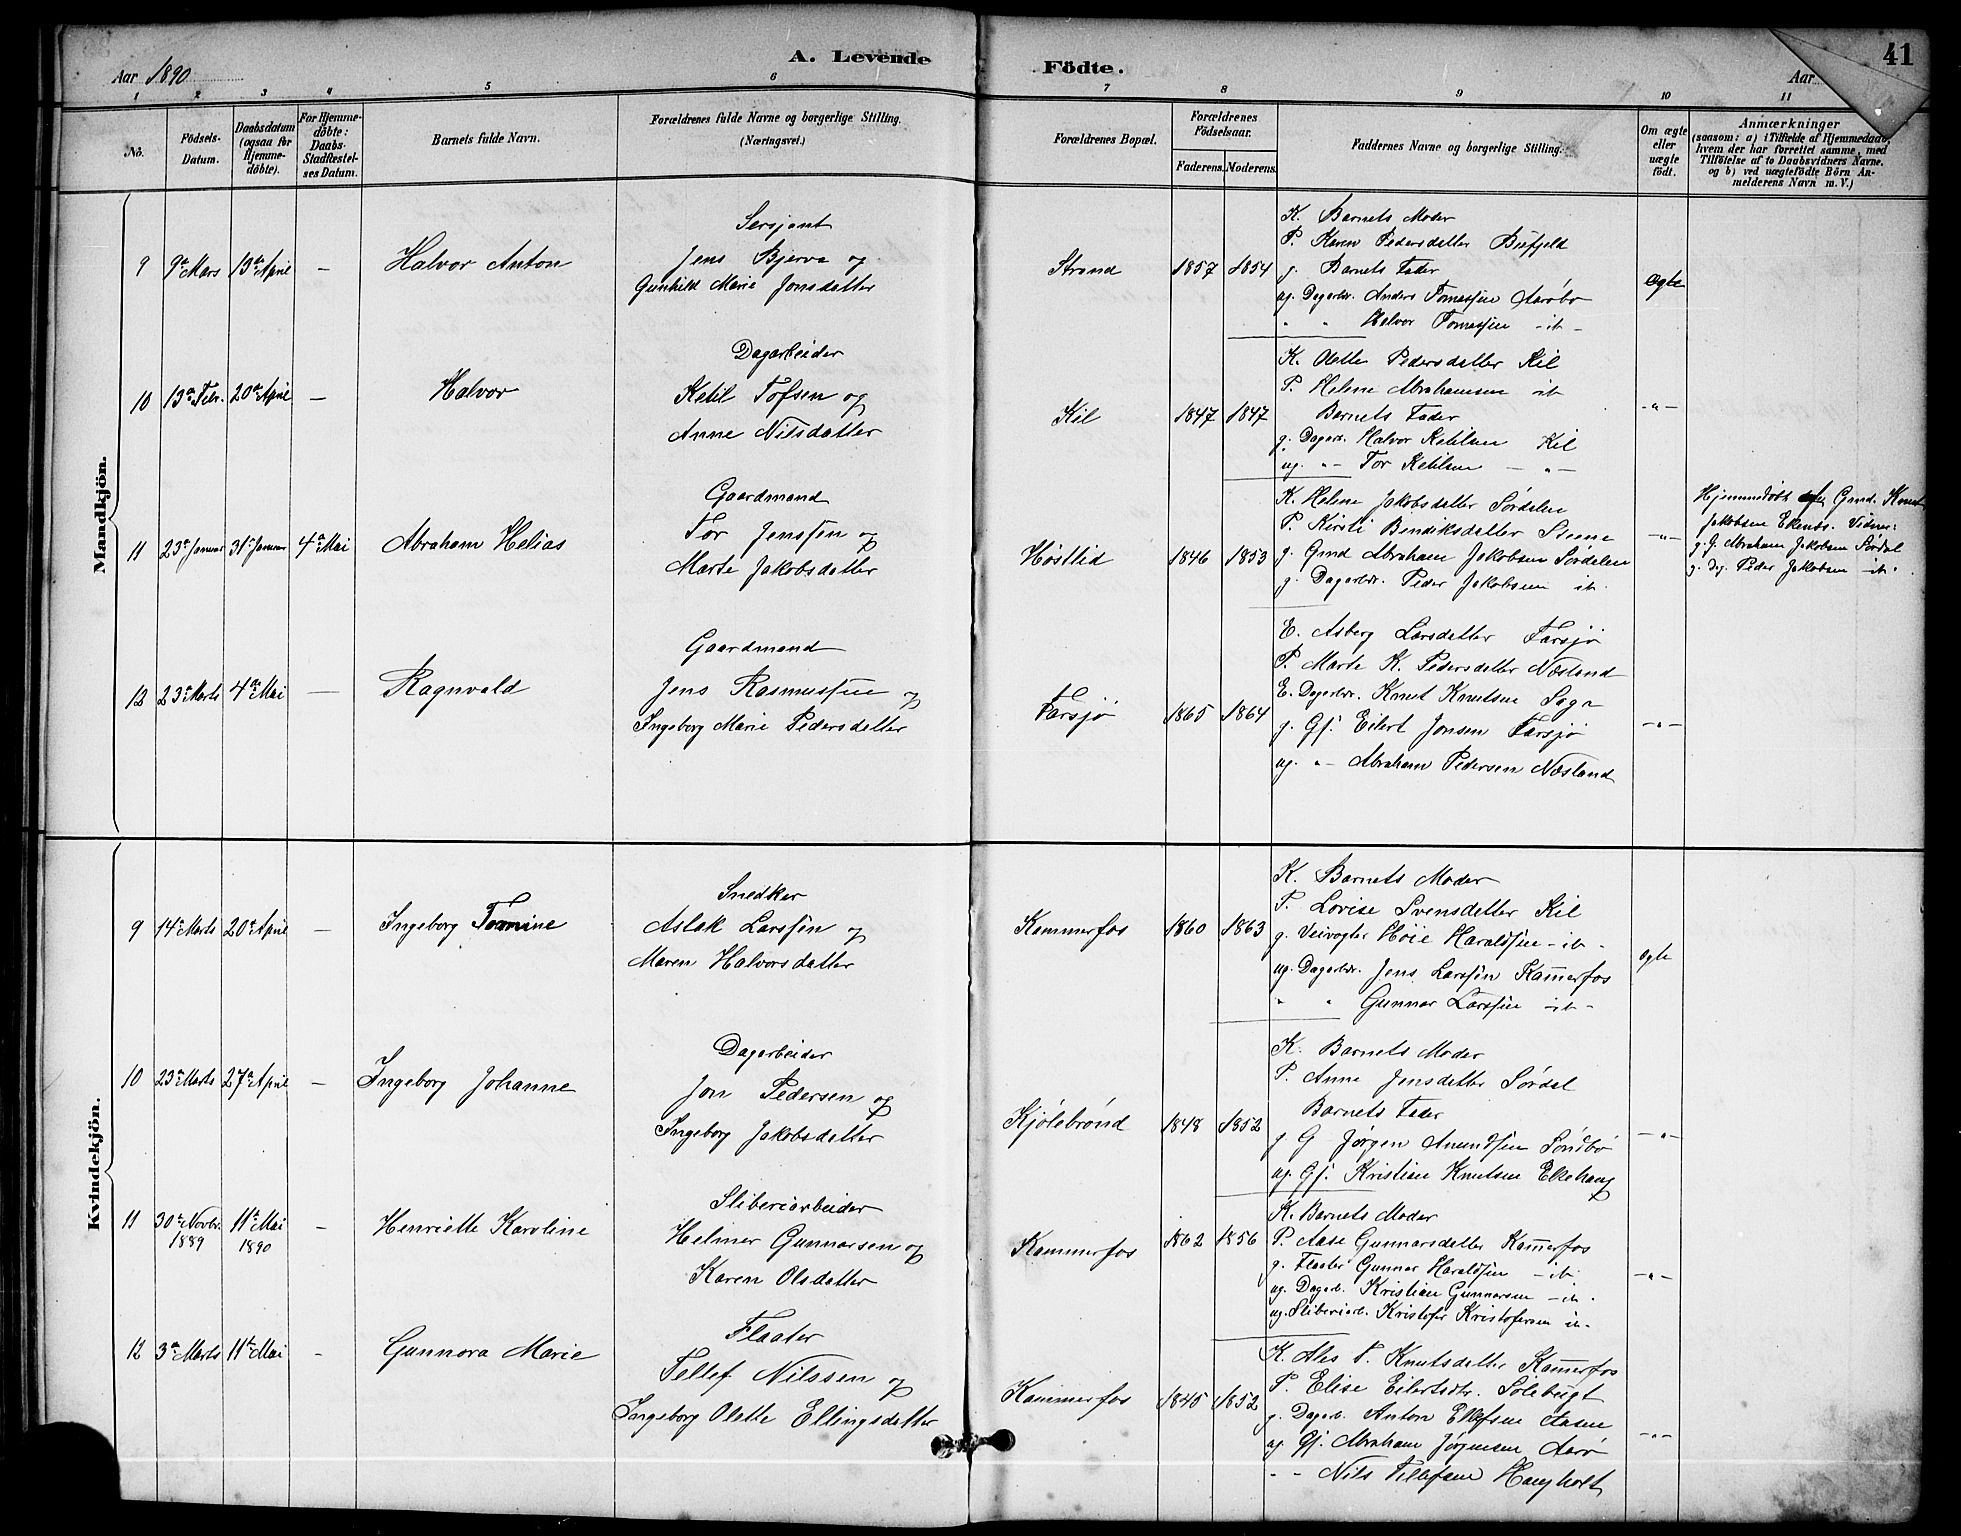 A. Levende Födte.
41
Aar 1890
Aar
1 2 3 4 5 6 7 8 9 10 11
No.
Födsels-Datum.
Daabsdatum (ogsaa for Hjemme-döbte).
For Hjemme-döbte: Daabs-Stadfæstel-ses Datum.
Barnets fulde Navn.
Forældrenes fulde Navne og borgerlige Stilling. (Næringsvei.)
Forældrenes Bopæl.
Forældrenes Födselsaar.
Faderens. Moderens.
Faddernes Navne og borgerlige Stilling.
Om ægte eller uægte födt.
Anmærkninger
(saasom: a) i Tilfælde af Hjemmedaab, hvem der har forrettet samme, med Tilföielse af to Daabsvidners Navne. og b) ved uægtefödte Börn An-melderens Navn m. V.)
Mandkjön.
9 9de Mars 13de April — Halvor Anton
Sersjant
Jens Bjerva og
Gunhild Marie Jonsdatter
Strand 1857 1854
K. Barnets Moder
P. Karen Pedersdatter
g. Barnets Fader
ug. Dagarbr. Anders Tomassen Aarøbø
" " Halvor Tomassen - ib -
ægte
10 13de Febr. 20de April — Halvor
Dagarbeider
Ketil Tofsen og
Anne Nilsdatter
Kil 1847 1847
K. Olette Pedersdatter Kil
P. Helene Abrahamsen ib
Barnets Fader
g. Dagarb. Halvor Ketilsen Kil
ug. " Tor Ketilsen — " —
- " -
11 23de Januar 31te Januar 4de Mai Abraham Helias
Gaardmand
Tor Jenssen og
Marte Jakobsdatter
Høstlid 1846 1853
K. Helene Jakobsdatter Sørdalen
P. Kirsti Bendiksdatter Steene
g. Gmd Abraham Jakobsen Sørdalen
g. Dagarbr. Peder Jakobsen ib.
- " -
Hjemmedøbt af Gmd. Knut
Jakobsen Ekenbs. Vidner:
g. G. Abraham Jakobsen Sørdal
g. Dg. Peder Jakobsen ib.
12 23de Marts 4de Mai — Ragnvald
Gaardmand
Jens Rasmussen og
Ingeborg Marie Pedersdatter
Farsjø 1865 1864
E. Asberg Larsdatter Farsjø
P. Marte K. Pedersdatter Næsland
E. Dagarbr. Knut Knutsen Saga
g. Gf. Eilert Jonsen Farsjø
ug. " Abraham Pedersen Næsland
- " -
Kvindekjön.
9 14de Marts 20de April — Ingeborg Tomine
Snedker
Aslak Larssen og
Maren Halvorsdatter
Kammerfos 1860 1863
K. Barnets Moder
P. Lovise Svensdatter Kil
g. Veivogter Høie Haraldsen - ib -
ug. Dagarbr. Jens Larssen Kam̄erfos
" " Gunnar Larssen ib -
ægte
10 23de Marts 27de April — Ingeborg Johanne
Dagarbeider
Jon Pedersen og
Ingeborg Jakobsdatter
Kjølebrønd 1848 1852
K. Barnets Moder
P. Anne Jensdatter Sørdal
Barnets Fader
g G Jørgen Amundsen Søndbø
ug. Gf. Kristian Knutsen Ekehaug
- " -
11 30te Novbr. 1889 11te Mai 1890 — Henriette Karoline
Sliberiarbeider
Helmer Gunnarsen og
Karen Olsdatter
Kammerfos 1862 1856
K. Barnets Moder
P. Aase Gunnarsdatter Kam̄erfos
g. Flaater Gunnar Haraldsen - ib.
ug. Dagarb. Kristian Gunnarsen - ib.
ug. Sliberiarb. Kristofer Kristofersen ib -
- " -
12 3de Marts 11te Mai — Gunnora Marie
Flaater
Tellef Nilssen og
Ingeborg Olette Ellingsdatter
Kammerfos 1845 1852
K. Ales T. Knutsdatter Kam̄erfos
P. Elise Eilertsdtr. Sølebugt
g. Dagarb. Anton Ellefsen Aasen
ug. Gf. Abraham Jørgensen Aarø
" " Nils Tellefsen Haugholt
- " -